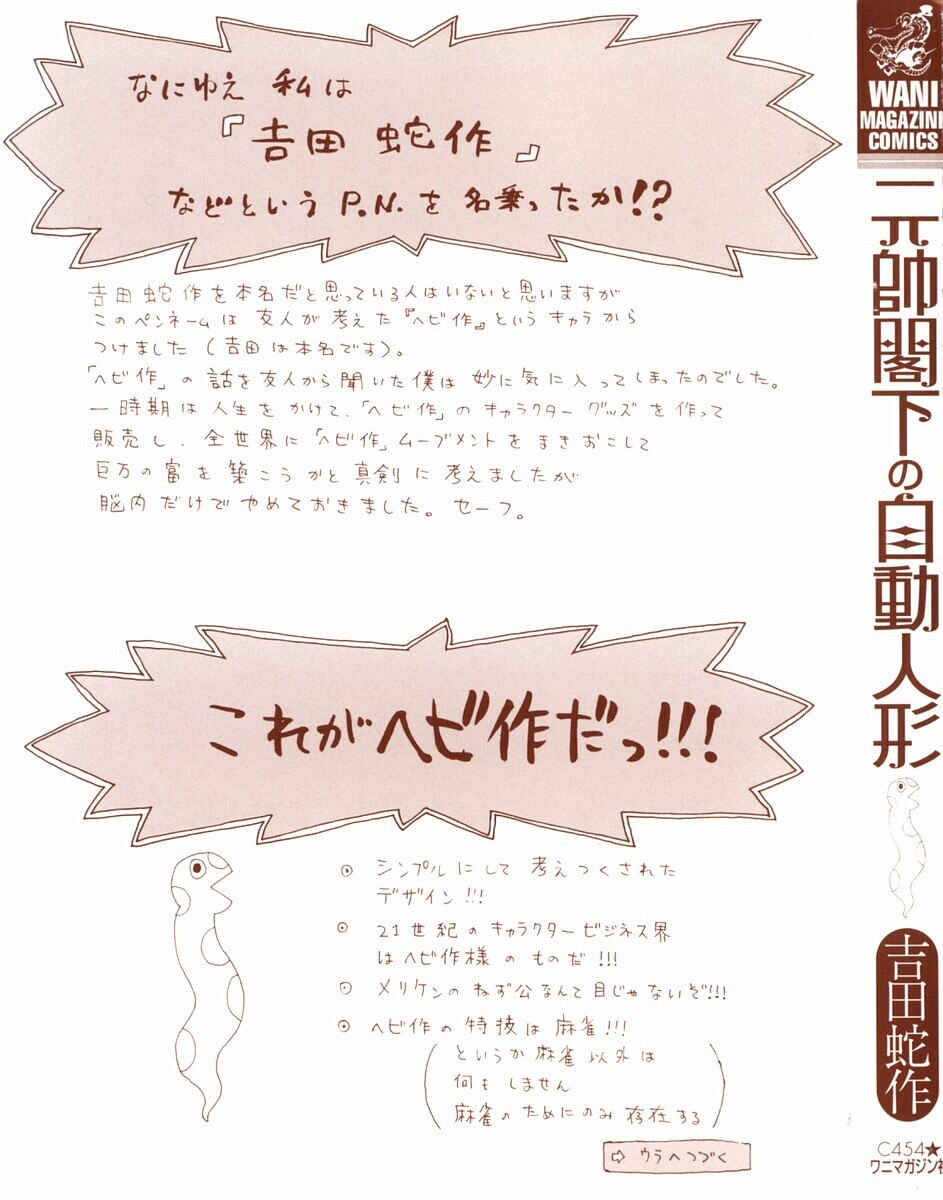 なにゆえ 私は
『吉田 蛇作』
などという P.N.を 名乗ったか!?
吉田 蛇作を本名だと思っている人はいないと思いますが
このペンネームは 友人が 考えた『ヘビ作』という キャラから
つけました (吉田は本名です)。
「ヘビ作」の 話を友人から 聞いた僕は 妙に気に入ってしまったのでした。
一時期は 人生を かけて、「ヘビ作」の キャラクター グッズを作って
販売し、全世界に「ヘビ作」ムーブメントを まきおこして
巨万の富を 築こうかと真剣に 考えましたが
脳内だけで やめておきました。セーフ。
これがヘビ作だっ!!!
シンプルにして 考えつくされた
デザイン!!!
21世紀の キャラクタービジネス界
はヘビ作様の ものだ!!!
メリケンの ねず公なんて 目じゃないぞ!!!
ヘビ作の 特技は 麻雀!!!
(というか 麻雀以外は
何も しません
麻雀のためにのみ 存在する)
⇨ ウラへつづく
WANI
MAGAZINE
COMICS
元帥閣下の自動人形
吉田蛇作
C454★
ワニマガジン社